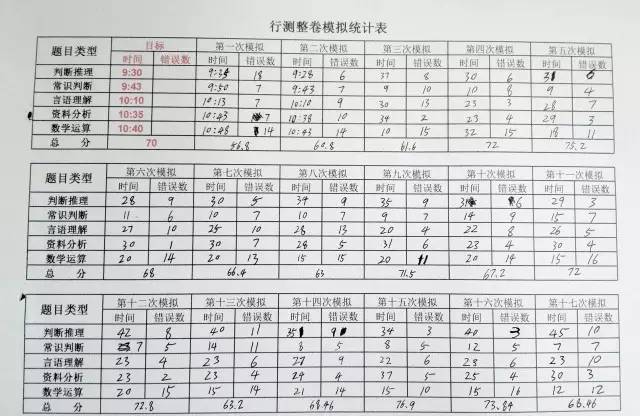 行测整卷模拟统计表
题目类型 目标 第一次模拟 第二次模拟 第三次模拟 第四次模拟 第五次模拟
时间 错误数 时间 错误数 时间 错误数 时间 错误数 时间 错误数 时间 错误数
判断推理 9:30 18 9:28 6 37 8 30 6
常识判断 9:43 9:50 7 9:43 7 9 10 10 8 9 4
言语理解 10:10 10:13 7 10:10 9 30 13 23 3 28 7
资料分析 10:35 10:43 7 10:38 10 34 2 23 4 29 3
数学运算 10:40 10:48 14 10:43 14 10 15 32 15 18 11
总 分 70 56.8 60.8 61.6 72 75.2
题目类型 第六次模拟 第七次模拟 第八次模拟 第九次模拟 第十次模拟 第十一次模拟
时间 错误数 时间 错误数 时间 错误数 时间 错误数 时间 错误数 时间 错误数
判断推理 28 9 30 5 34 9 35 9 6 29 3
常识判断 11 6 10 7 10 7 9 7 14 9 15 7
言语理解 27 10 25 10 28 13 20 4 22 8 26 5
资料分析 30 1 30 7 28 5 31 6 23 4 30 4
数学运算 20 14 20 13 15 15 20 11 20 14 15 16
总 分 68 66.4 63 71.5 67.2 72
题目类型 第十二次模拟 第十三次模拟 第十四次模拟 第十五次模拟 第十六次模拟 第十七次模拟
时间 错误数 时间 错误数 时间 错误数 时间 错误数 时间 错误数 时间 错误数
判断推理 42 8 40 11 35 9 34 3 40 3 45 10
常识判断 7 5 14 11 8 5 8 5 12 5 7 7
言语理解 23 4 23 6 27 9 22 6 28 6 23 10
资料分析 23 2 23 4 24 4 37 5 25 4 30 3
数学运算 20 15 15 14 21 14 15 10 15 16 12 12
总 分 72.8 63.2 68.46 76.9 73.84 68.46